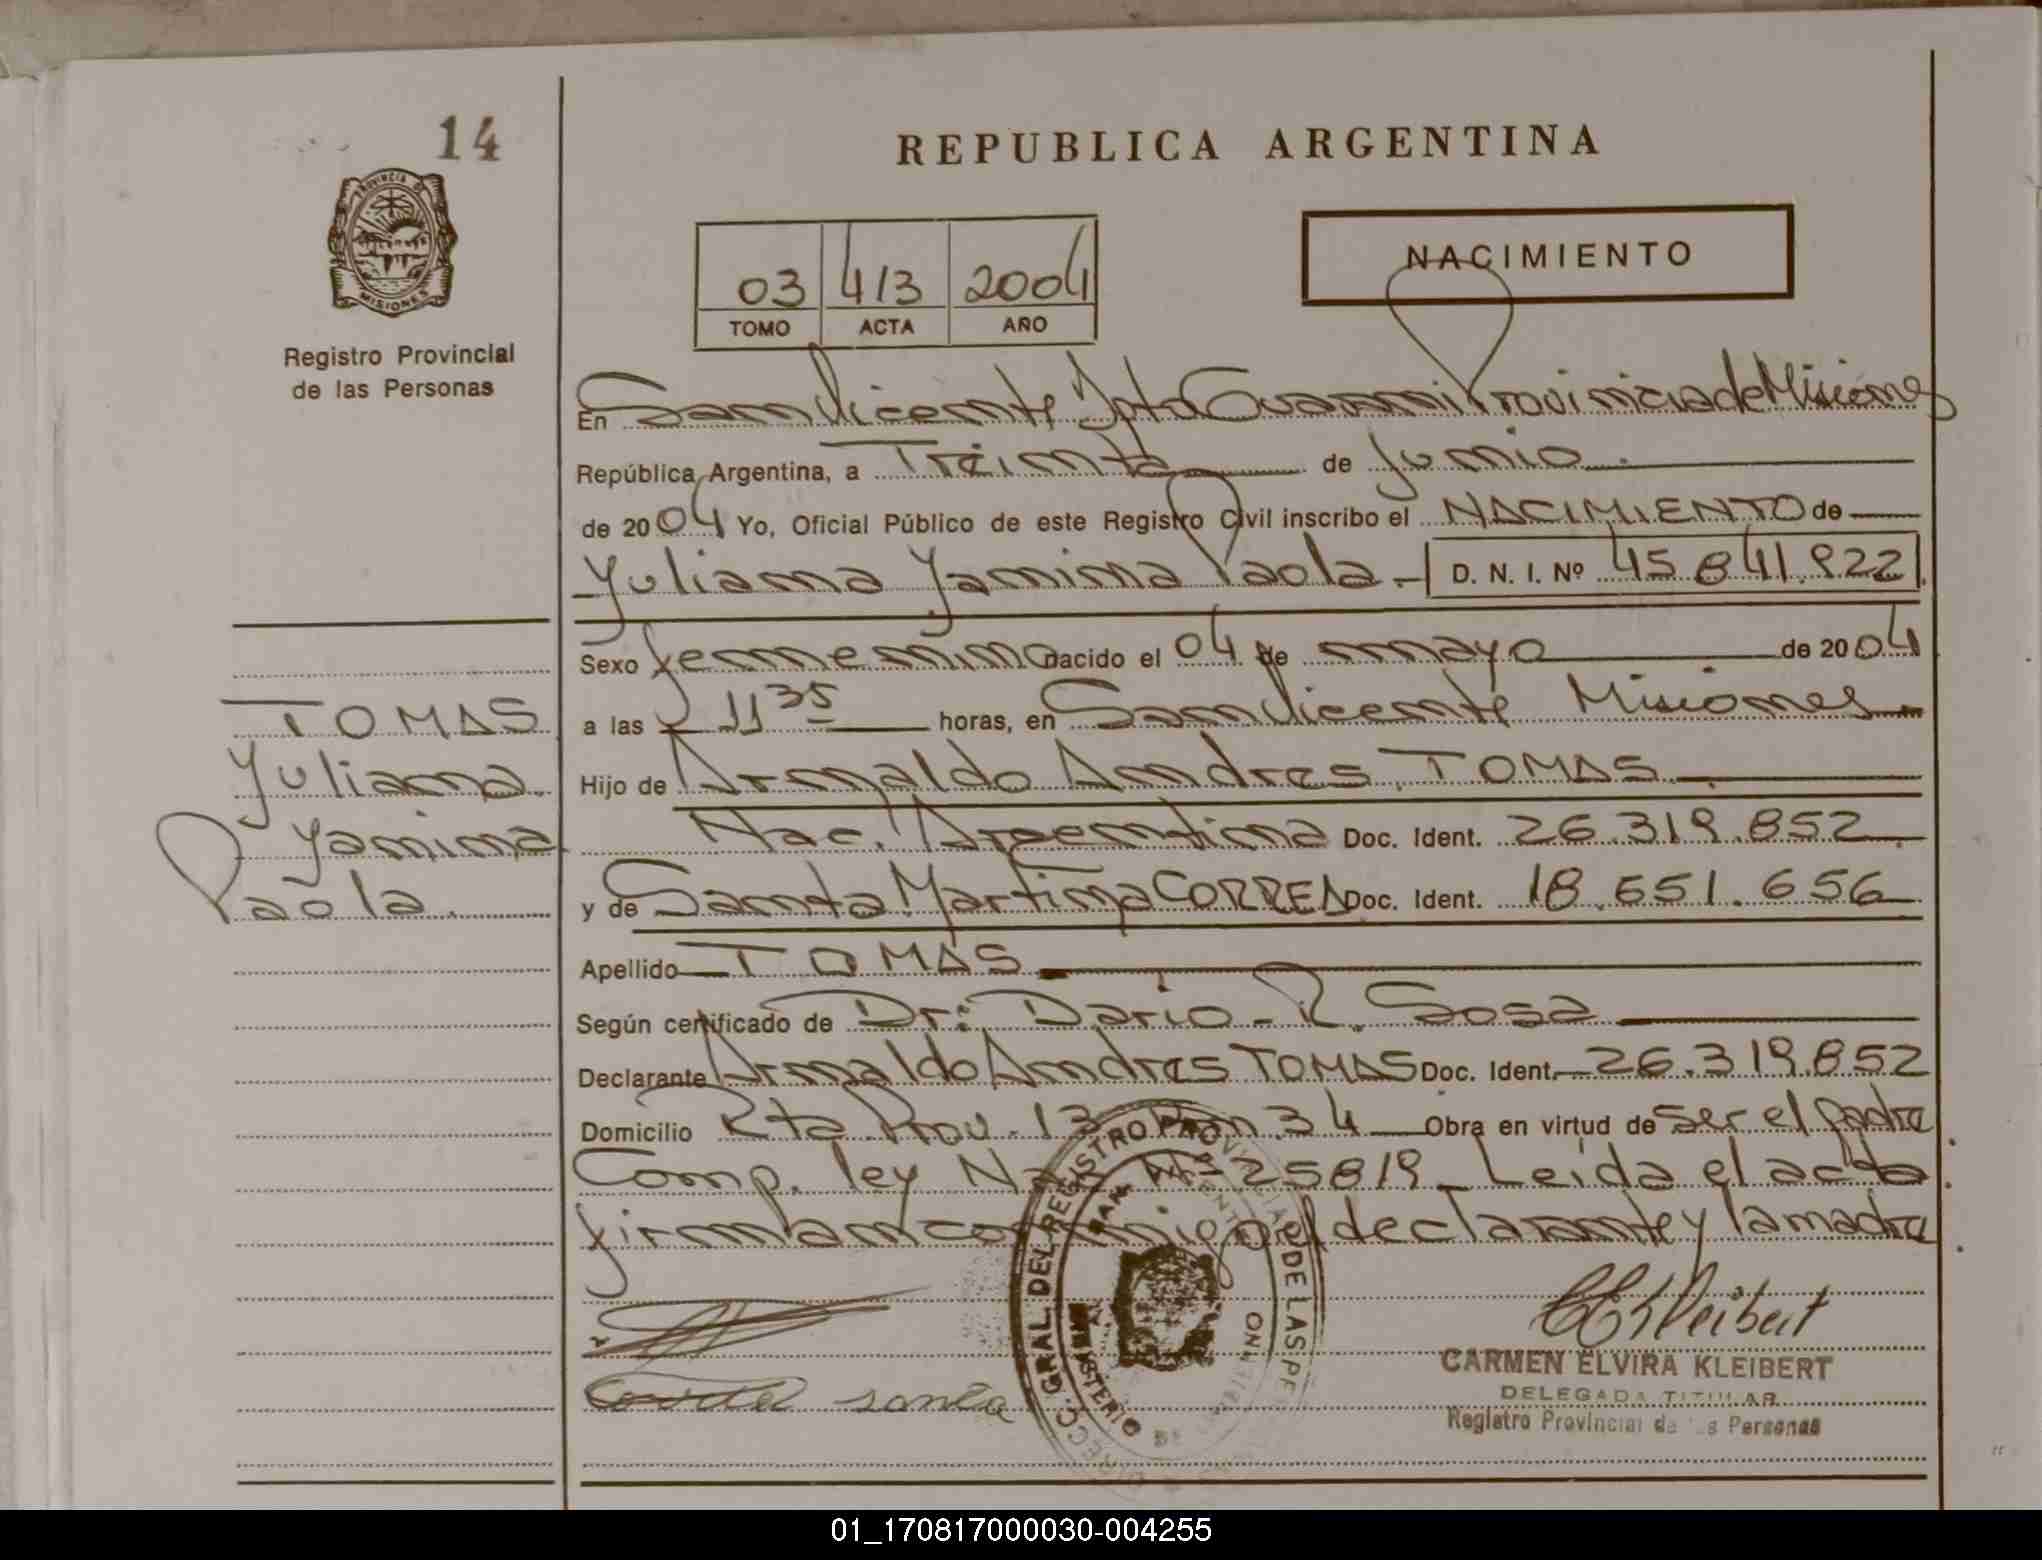 14
REPUBLICA ARGENTINA
PROVINCIA DE
MISIONES
Registro Provincial
de las Personas
NACIMIENTO
03 413 2004
TOMO ACTA AÑO
En San Vicente Dpto Guarani Provincia de Misiones
República Argentina, a Treinta de Junio
de 2004 Yo, Oficial Público de este Registro Civil inscribo el NACIMIENTO de
Yuliana Yanina Paola D. N. I. Nº 45.841.922
Sexo femenino nacido el 04 de mayo de 2004
a las 11 35 horas, en San Vicente Misiones
Hijo de Arnaldo Andres TOMAS
Nac. Argentina Doc. Ident. 26.319.852
y de Santa Martina CORREA Doc. Ident. 18.651.656
Apellido TOMAS
Según certificado de Dr: Dario R. Sosa
Declarante Arnaldo Andres TOMAS Doc. Ident. 26.319.852
Domicilio Rta Prov. 13 Km 34 Obra en virtud de ser el padre
Comp. ley Nac Nº 25819 Leida el acta
firman conmigo el declarante y la madre
TOMAS
Yuliana
Yanina
Paola.
santa
CARMEN ELVIRA KLEIBERT
DELEGADA TITULAR
Registro Provincial de las Personas
DIRECC. GRAL. DEL REGISTRO PROVINCIAL DE LAS PE
MINISTERIO DE
01_170817000030-004255